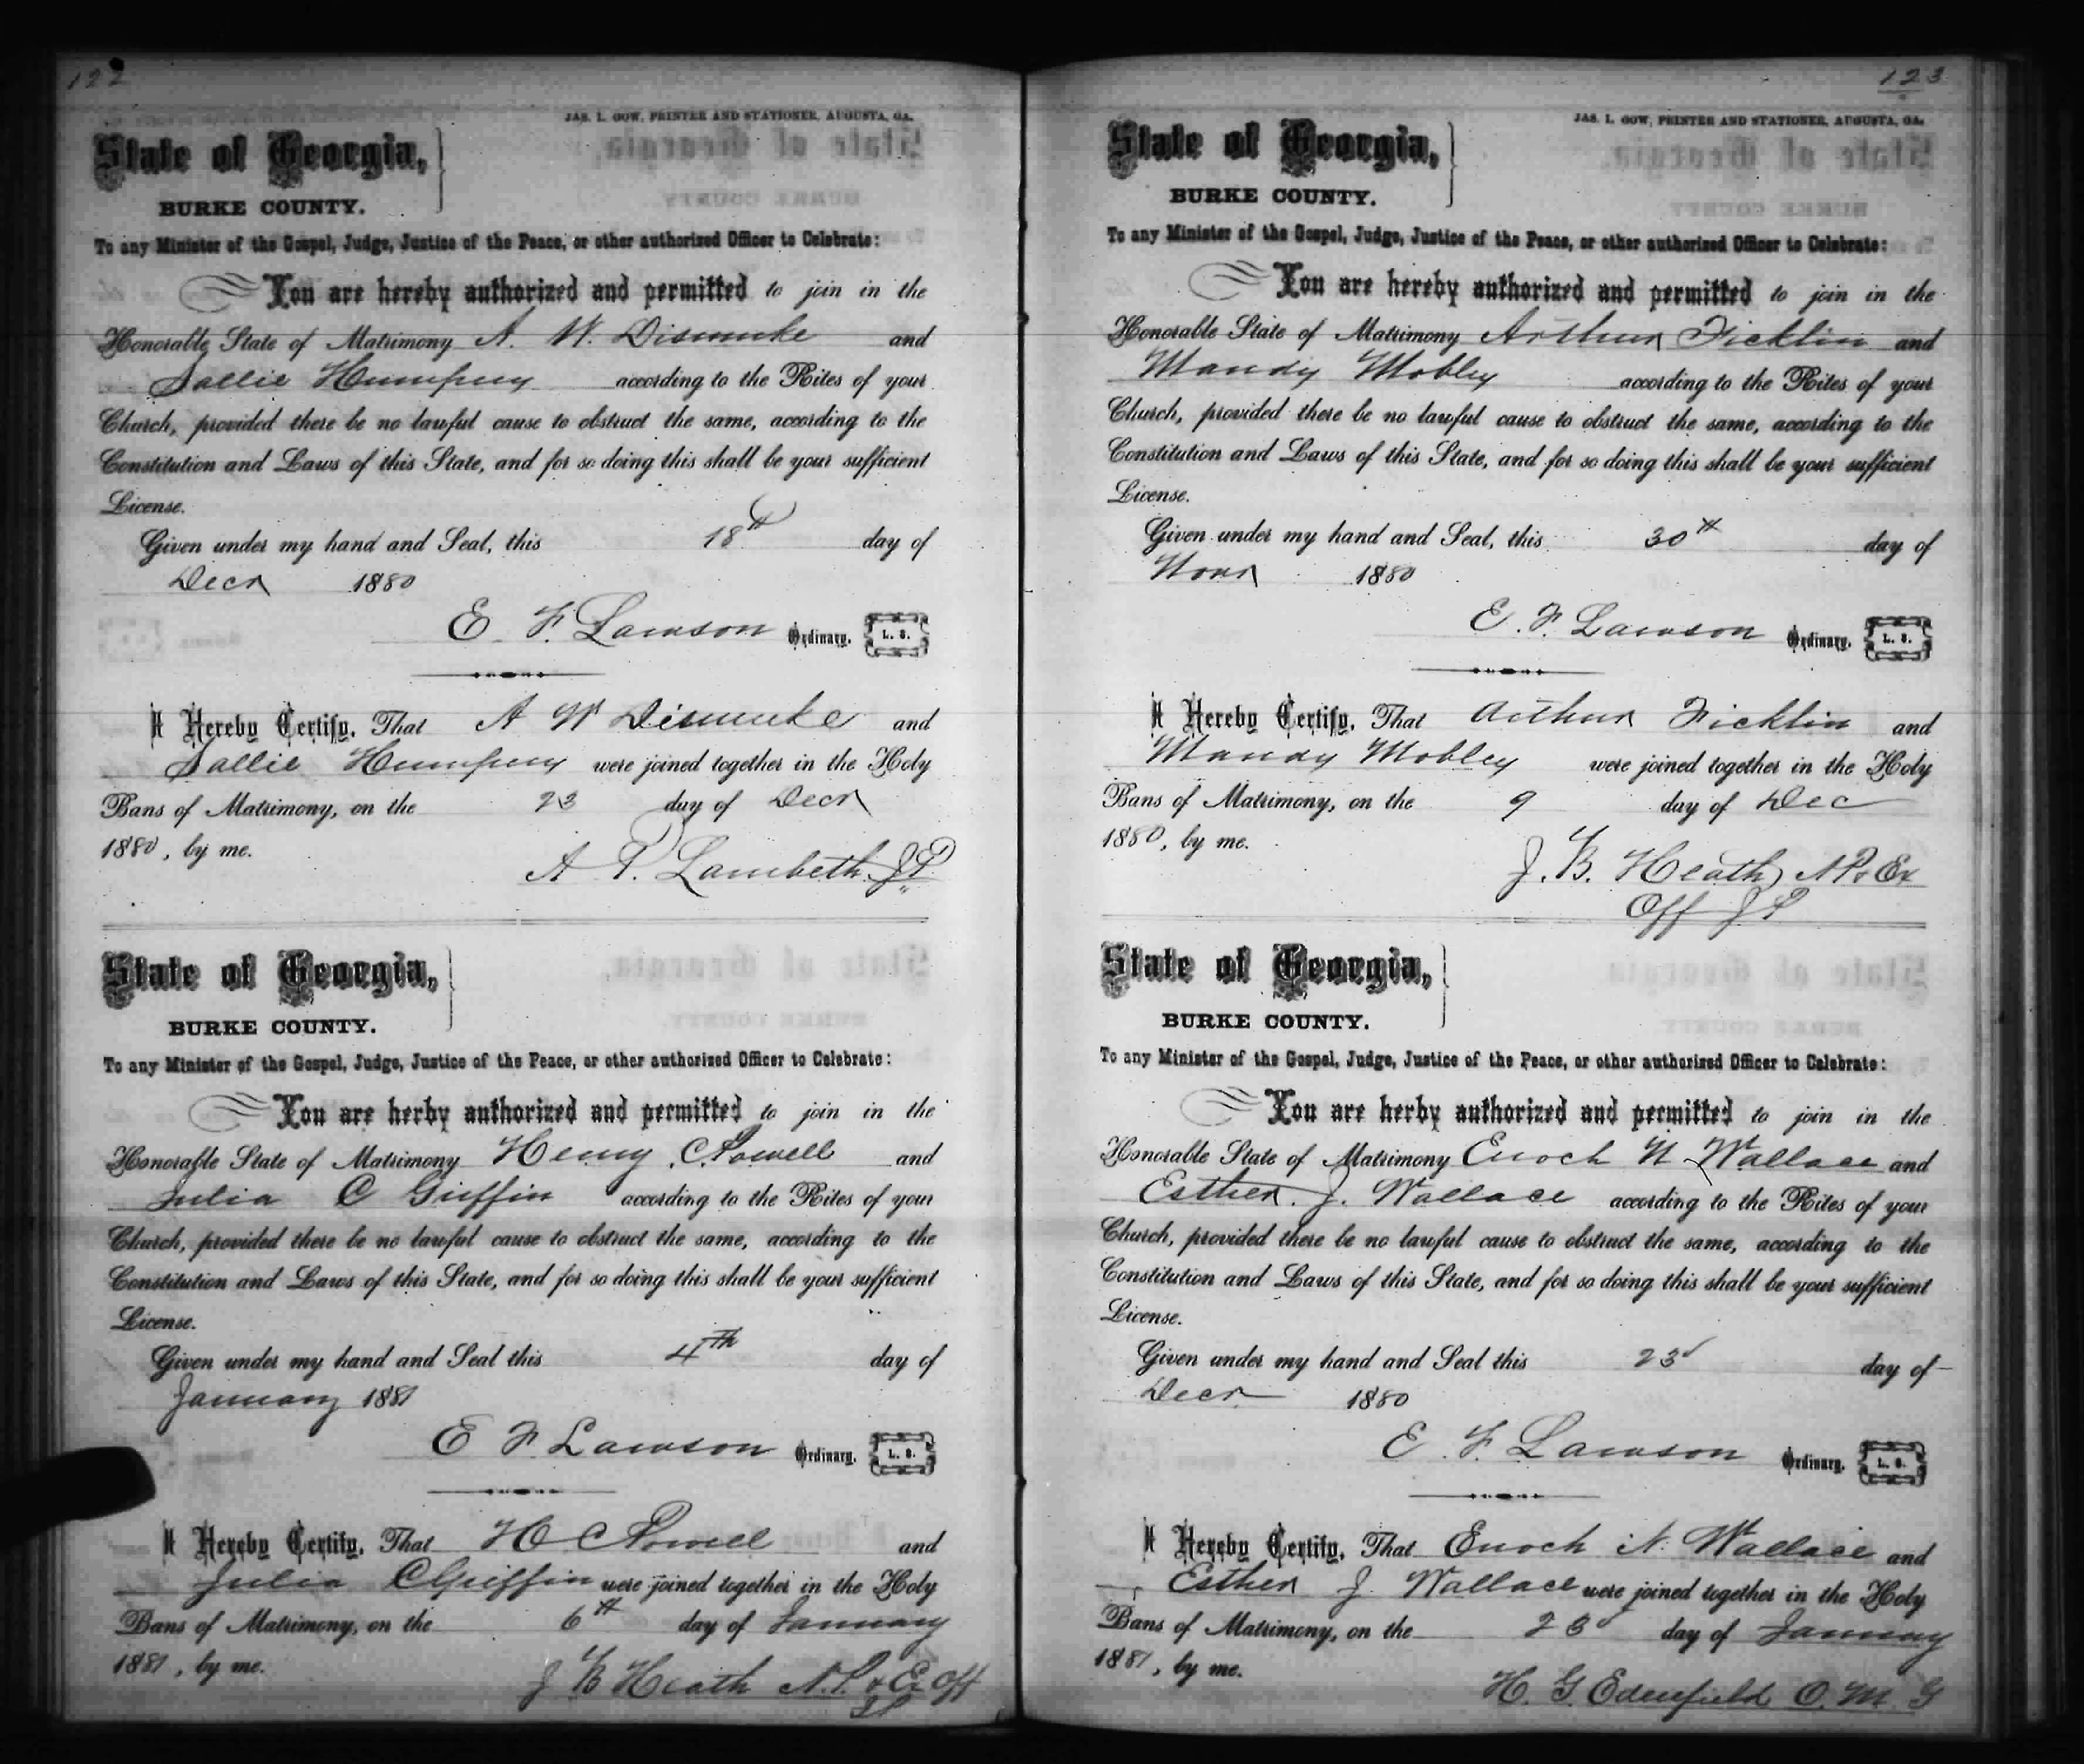 122
JAS. L. GOW, PRINTER AND STATIONER, AUGUSTA, GA.
State of Georgia,
BURKE COUNTY.
To any Minister of the Gospel, Judge, Justice of the Peace, or other authorized Officer to Celebrate:
You are hereby authorized and permitted to join in the
Honorable State of Matrimony A. W. Dismuke and
Sallie Humphrey according to the Rites of your
Church, provided there be no lawful cause to obstruct the same, according to the
Constitution and Laws of this State, and for so doing this shall be your sufficient
License.
Given under my hand and Seal, this 18th day of
Decr 1880
E. F. Lawson Ordinary. L. S.
I Hereby Certify, That A W Dismuke and
Sallie Humphrey were joined together in the Holy
Bans of Matrimony, on the 23 day of Decr
1880, by me.
A P. Lambeth J.P.
State of Georgia,
BURKE COUNTY.
To any Minister of the Gospel, Judge, Justice of the Peace, or other authorized Officer to Celebrate:
You are herby authorized and permitted to join in the
Honorable State of Matrimony Henry C. Powell and
Julia C Griffin according to the Rites of your
Church, provided there be no lawful cause to obstruct the same, according to the
Constitution and Laws of this State, and for so doing this shall be your sufficient
License.
Given under my hand and Seal this 4th day of
January 1881
E F. Lawson Ordinary. L. S.
I Hereby Certify, That H C Powell and
Julia C Griffin were joined together in the Holy
Bans of Matrimony, on the 6th day of January
1881, by me.
J B Heath N.P. & Ex Off
JP
123
JAS. L. GOW, PRINTER AND STATIONER, AUGUSTA, GA.
State of Georgia,
BURKE COUNTY.
To any Minister of the Gospel, Judge, Justice of the Peace, or other authorized Officer to Celebrate:
You are hereby authorized and permitted to join in the
Honorable State of Matrimony Arthur Ficklin and
Mandy Mobley according to the Rites of your
Church, provided there be no lawful cause to obstruct the same, according to the
Constitution and Laws of this State, and for so doing this shall be your sufficient
License.
Given under my hand and Seal, this 30th day of
Novr 1880
E. F. Lawson Ordinary. L. S.
I Hereby Certify, That Arthur Ficklin and
Mandy Mobley were joined together in the Holy
Bans of Matrimony, on the 9 day of Dec
1880, by me.
J. B. Heath, N P & Ex
Off J P
State of Georgia,
BURKE COUNTY.
To any Minister of the Gospel, Judge, Justice of the Peace, or other authorized Officer to Celebrate:
You are herby authorized and permitted to join in the
Honorable State of Matrimony Enoch N Wallace and
Esther. J. Wallace according to the Rites of your
Church, provided there be no lawful cause to obstruct the same, according to the
Constitution and Laws of this State, and for so doing this shall be your sufficient
License.
Given under my hand and Seal this 23d day of
Decr 1880
E. F. Lawson Ordinary. L. S.
I Hereby Certify, That Enoch N. Wallace and
Esther J. Wallace were joined together in the Holy
Bans of Matrimony, on the 23d day of January
1881, by me.
H. G. Edenfield O. M. G